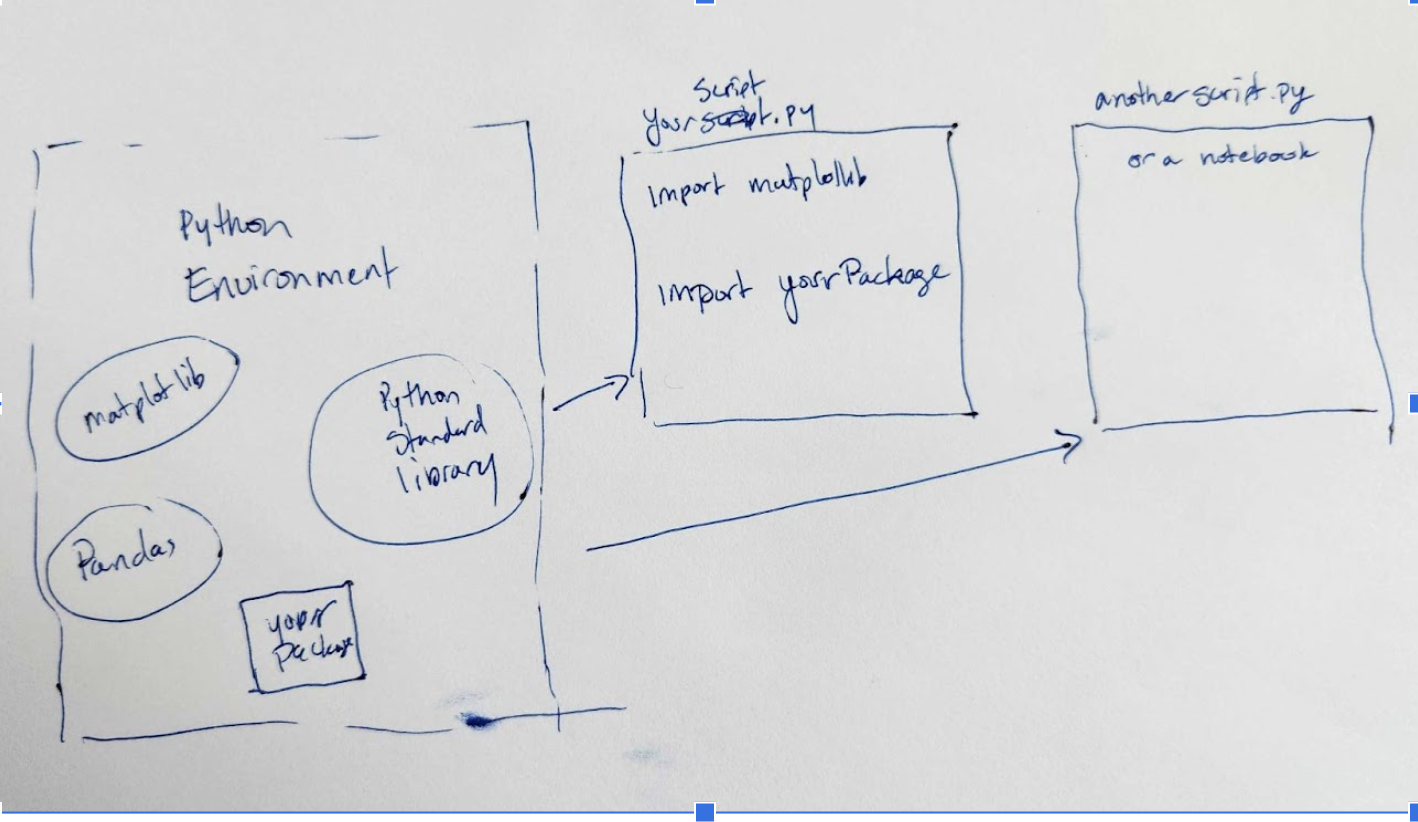 Python
Environment
matplotlib
Python
Standard
library
Pandas
your
package
Script
yourscript.py
Import matplotlib
Import yourPackage
another script.py
or a notebook